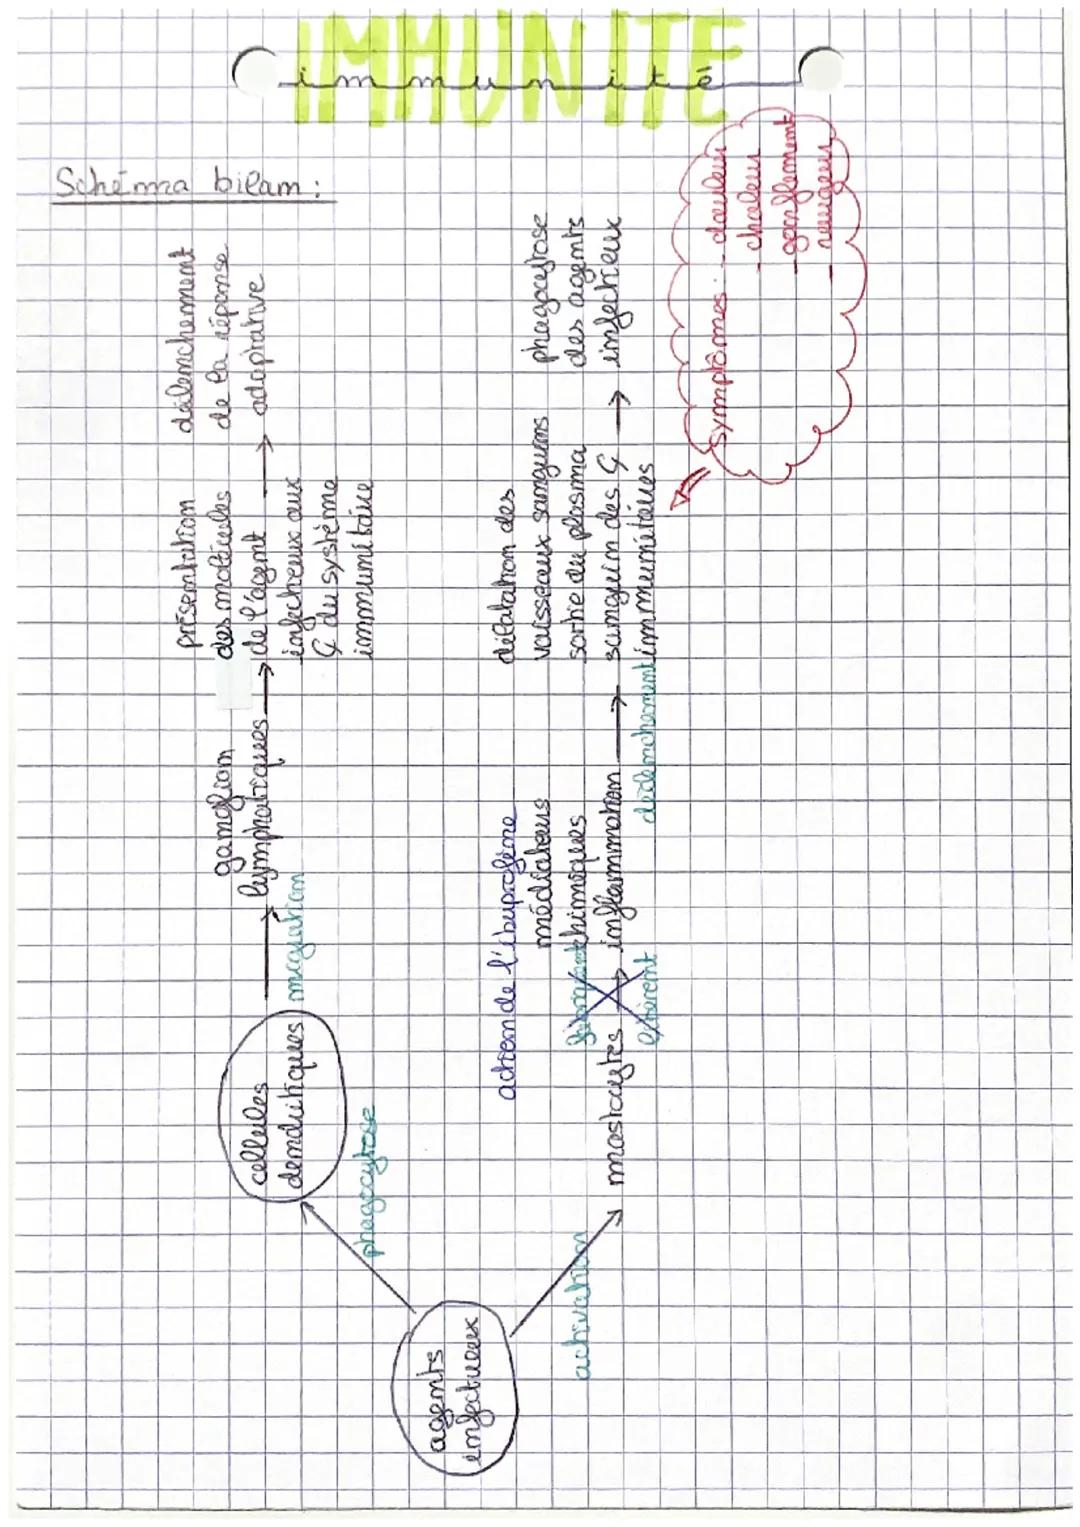 IMMUNITE
immunité
Schéma bilan :
agents
infectueux
phagocytose
cellules
dendritiques
migration
ganglion
lymphatiques
présentation
des molécules
de l'agent
infectieux aux
du système
immunitaire
déclenchement
de la réponse
adaptative
activation
mastocytes
action de l'ibuprofène
libèrent
médiateurs
chimiques
inflammation
déclenchement
dilatation des
vaisseaux sanguins
sortie du plasma
sanguin des
immunitaires
phagocytose
des agents
infectieux
symptômes : - douleur
- chaleur
- gonflement
- rougeur